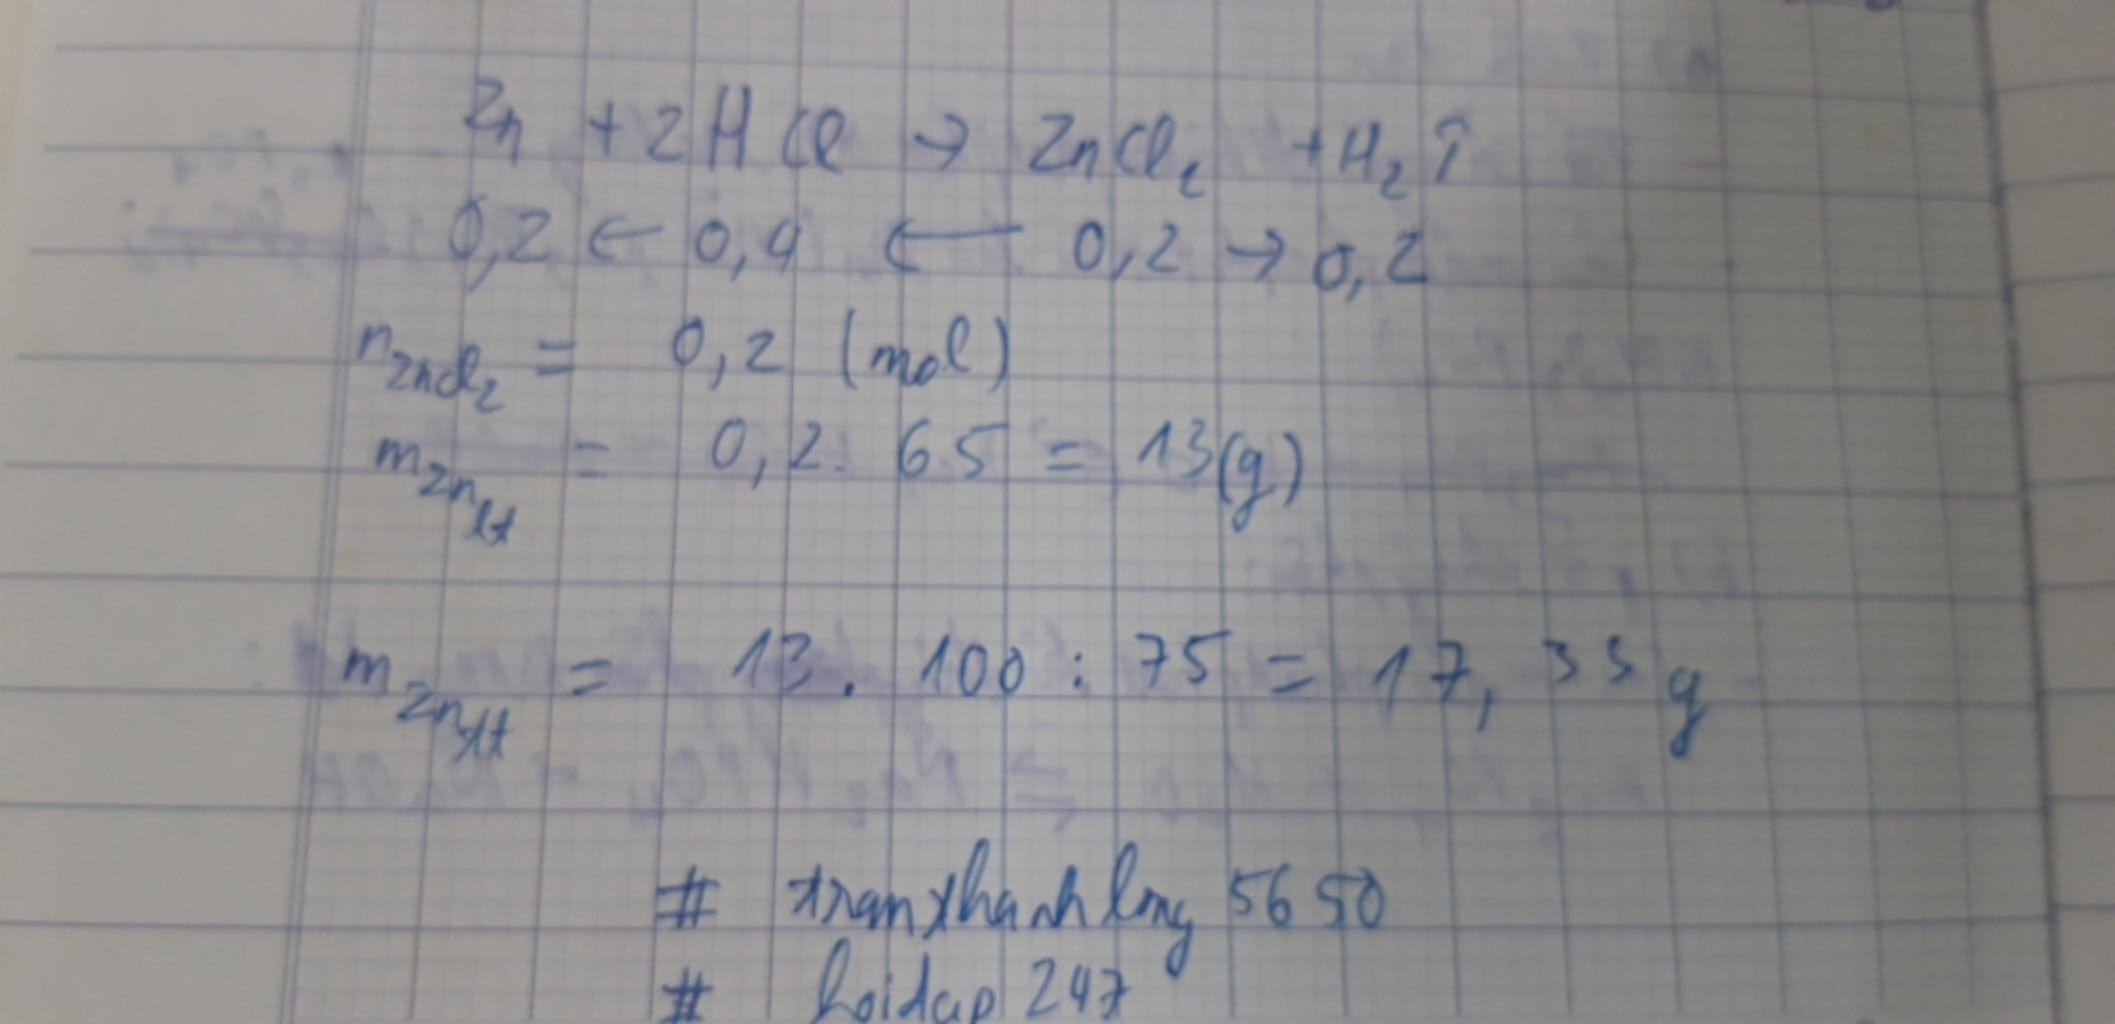 Zn + 2HCl → ZnCl₂ + H₂↑
0,2 ← 0,4 ← 0,2 → 0,2
nZnCl₂ = 0,2 (mol)
mZnlt = 0,2. 65 = 13(g)
mZntt = 13. 100 : 75 = 17,33 g
# tranthanhlong 5650
# hoidap 247